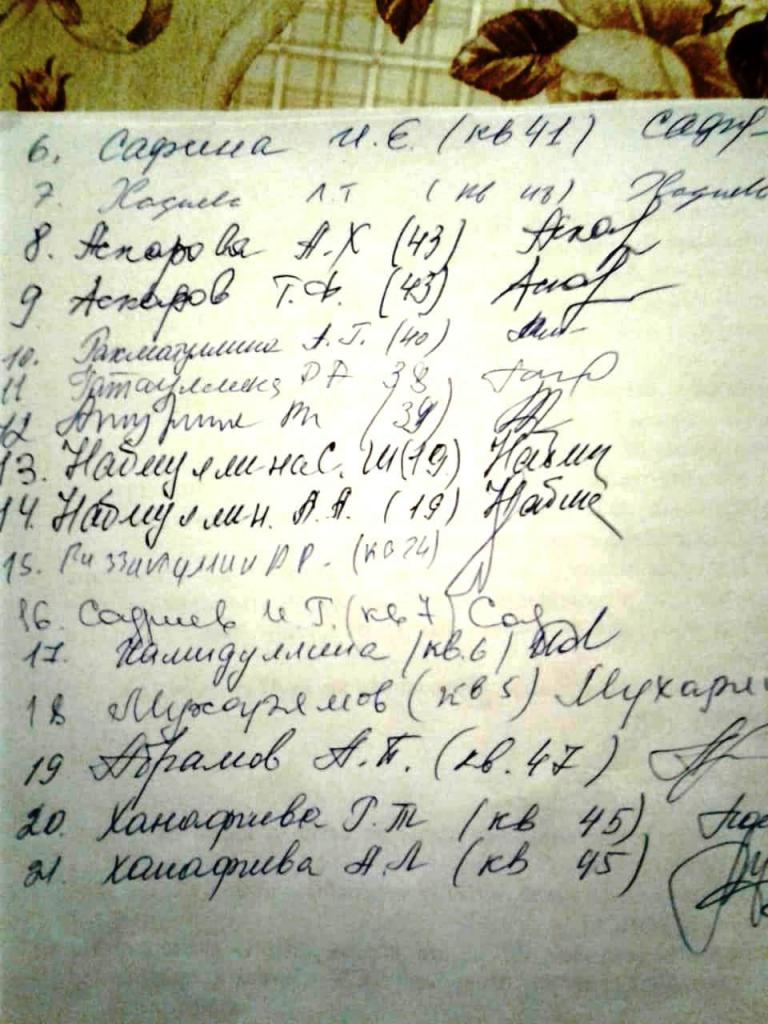 6. Сафина И.Е. (кв 41) Сафи
7. Л.Т (кв 43)
8. Аскарова А.Х (43) Аскар
9 Аскаров Т.Ф. (43) Аскар
10. Рахматуллина А.Г. (40)
11 Гатауллина Р Р 38
12 (39)
13. Набиуллина С. Ш (19) Набиу
14. Набиуллин. А.А. (19) Набиу
15. Р.Р. (кв 24)
16. Садриев И.Г. (кв 7) Сад
17. Хамидуллина (кв. 6)
18 Мухарлямов (кв 5) Мухарл
19 Абрамов А.П. (кв. 47)
20. Ханафиева Г.Т (кв 45)
21. Ханафиева А.Л (кв 45)